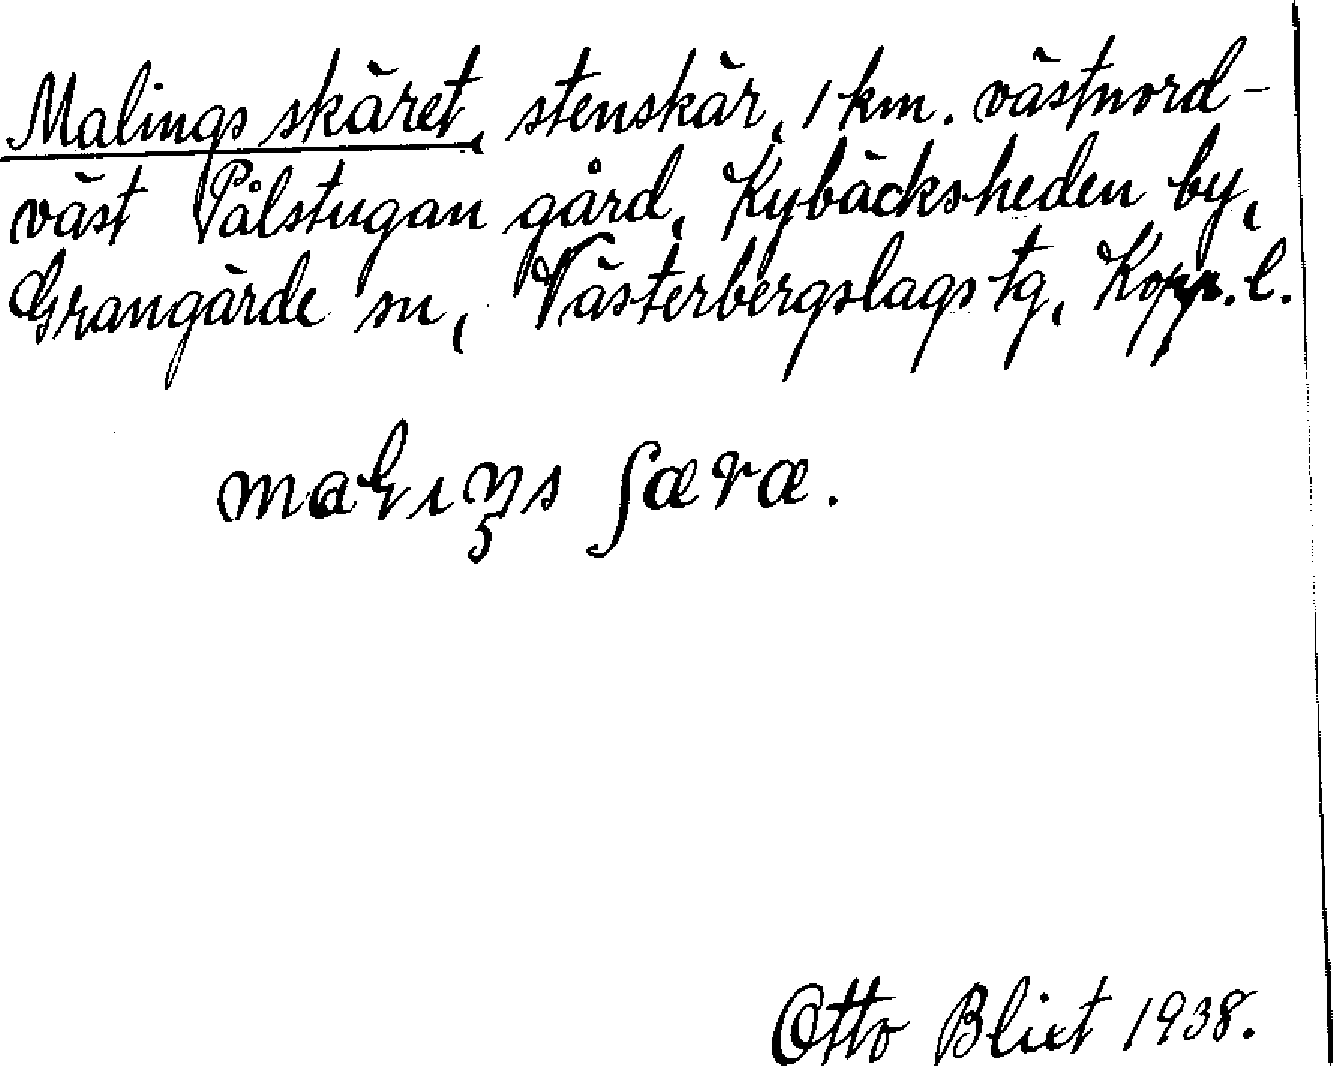 Malings skäret, stenskär, 1 km. västnord-
väst Pålstugan gård, Kybäcksheden by,
Grangärde sn, Västerbergslags tg, Kopp. l.
Otto Blixt 1938.